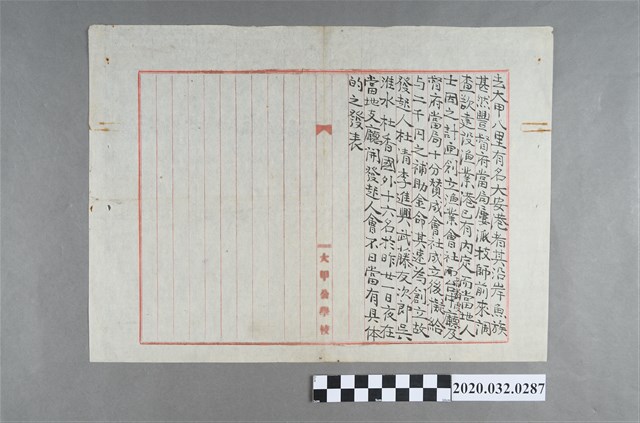 去大甲八里有名大安港者其沿岸魚族
甚然豊督府當局屢派技師前来調
查欲建設漁業港已有内定而當地人
士因之計画創立漁業會社而臺中廳及
督府當局十分賛成會社成立後擬給
与二千円之補助金命其速為創立故
發起人杜清李進興武藤友次郎吳
淮水杜香國外十六名於昨廿一日夜在
當地支廳開發起人會不日當有具体
的之發表
大甲公學校
2020.032.0287